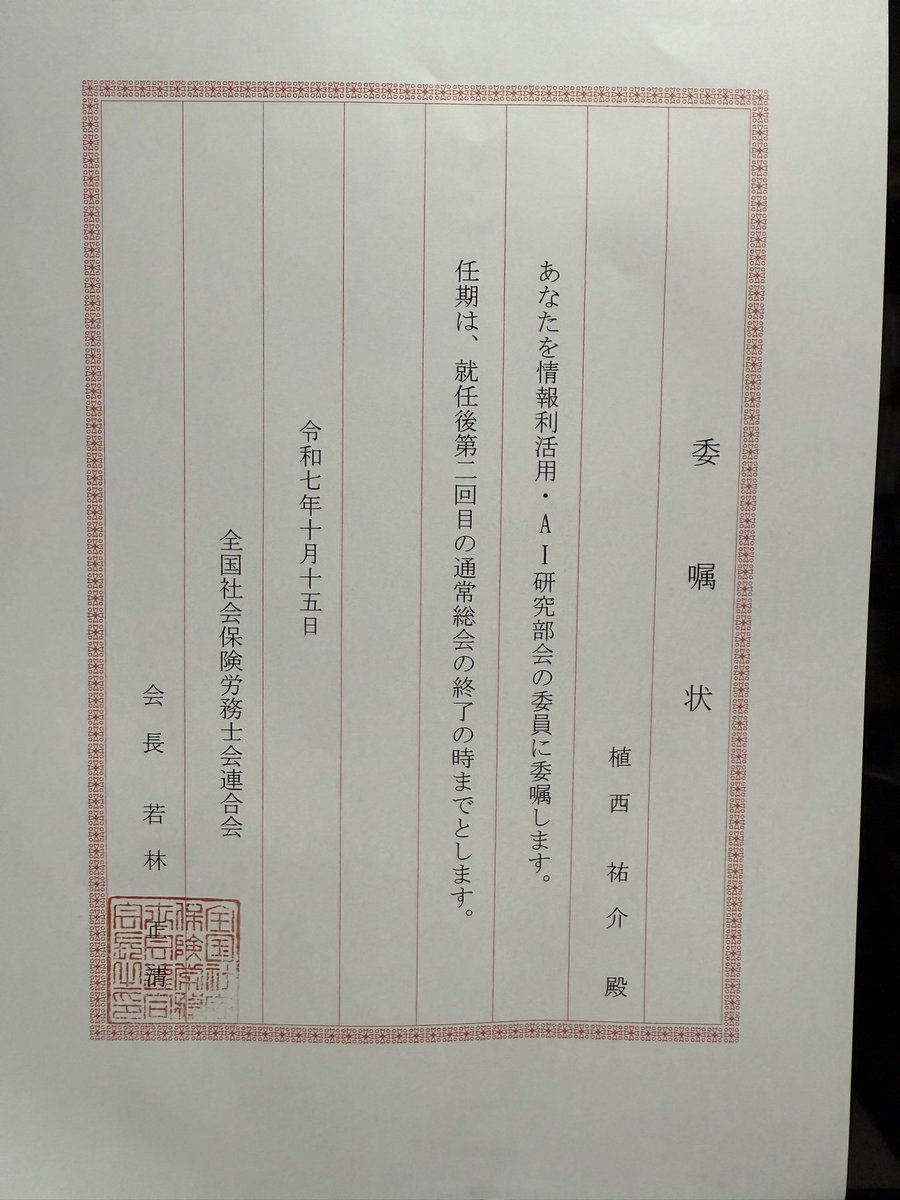 委嘱状
植西祐介殿
あなたを情報利活用・AI研究部会の委員に委嘱します。
任期は、就任後第二回目の通常総会の終了の時までとします。
令和七年十月十五日
全国社会保険労務士会連合会
会長 若林正清